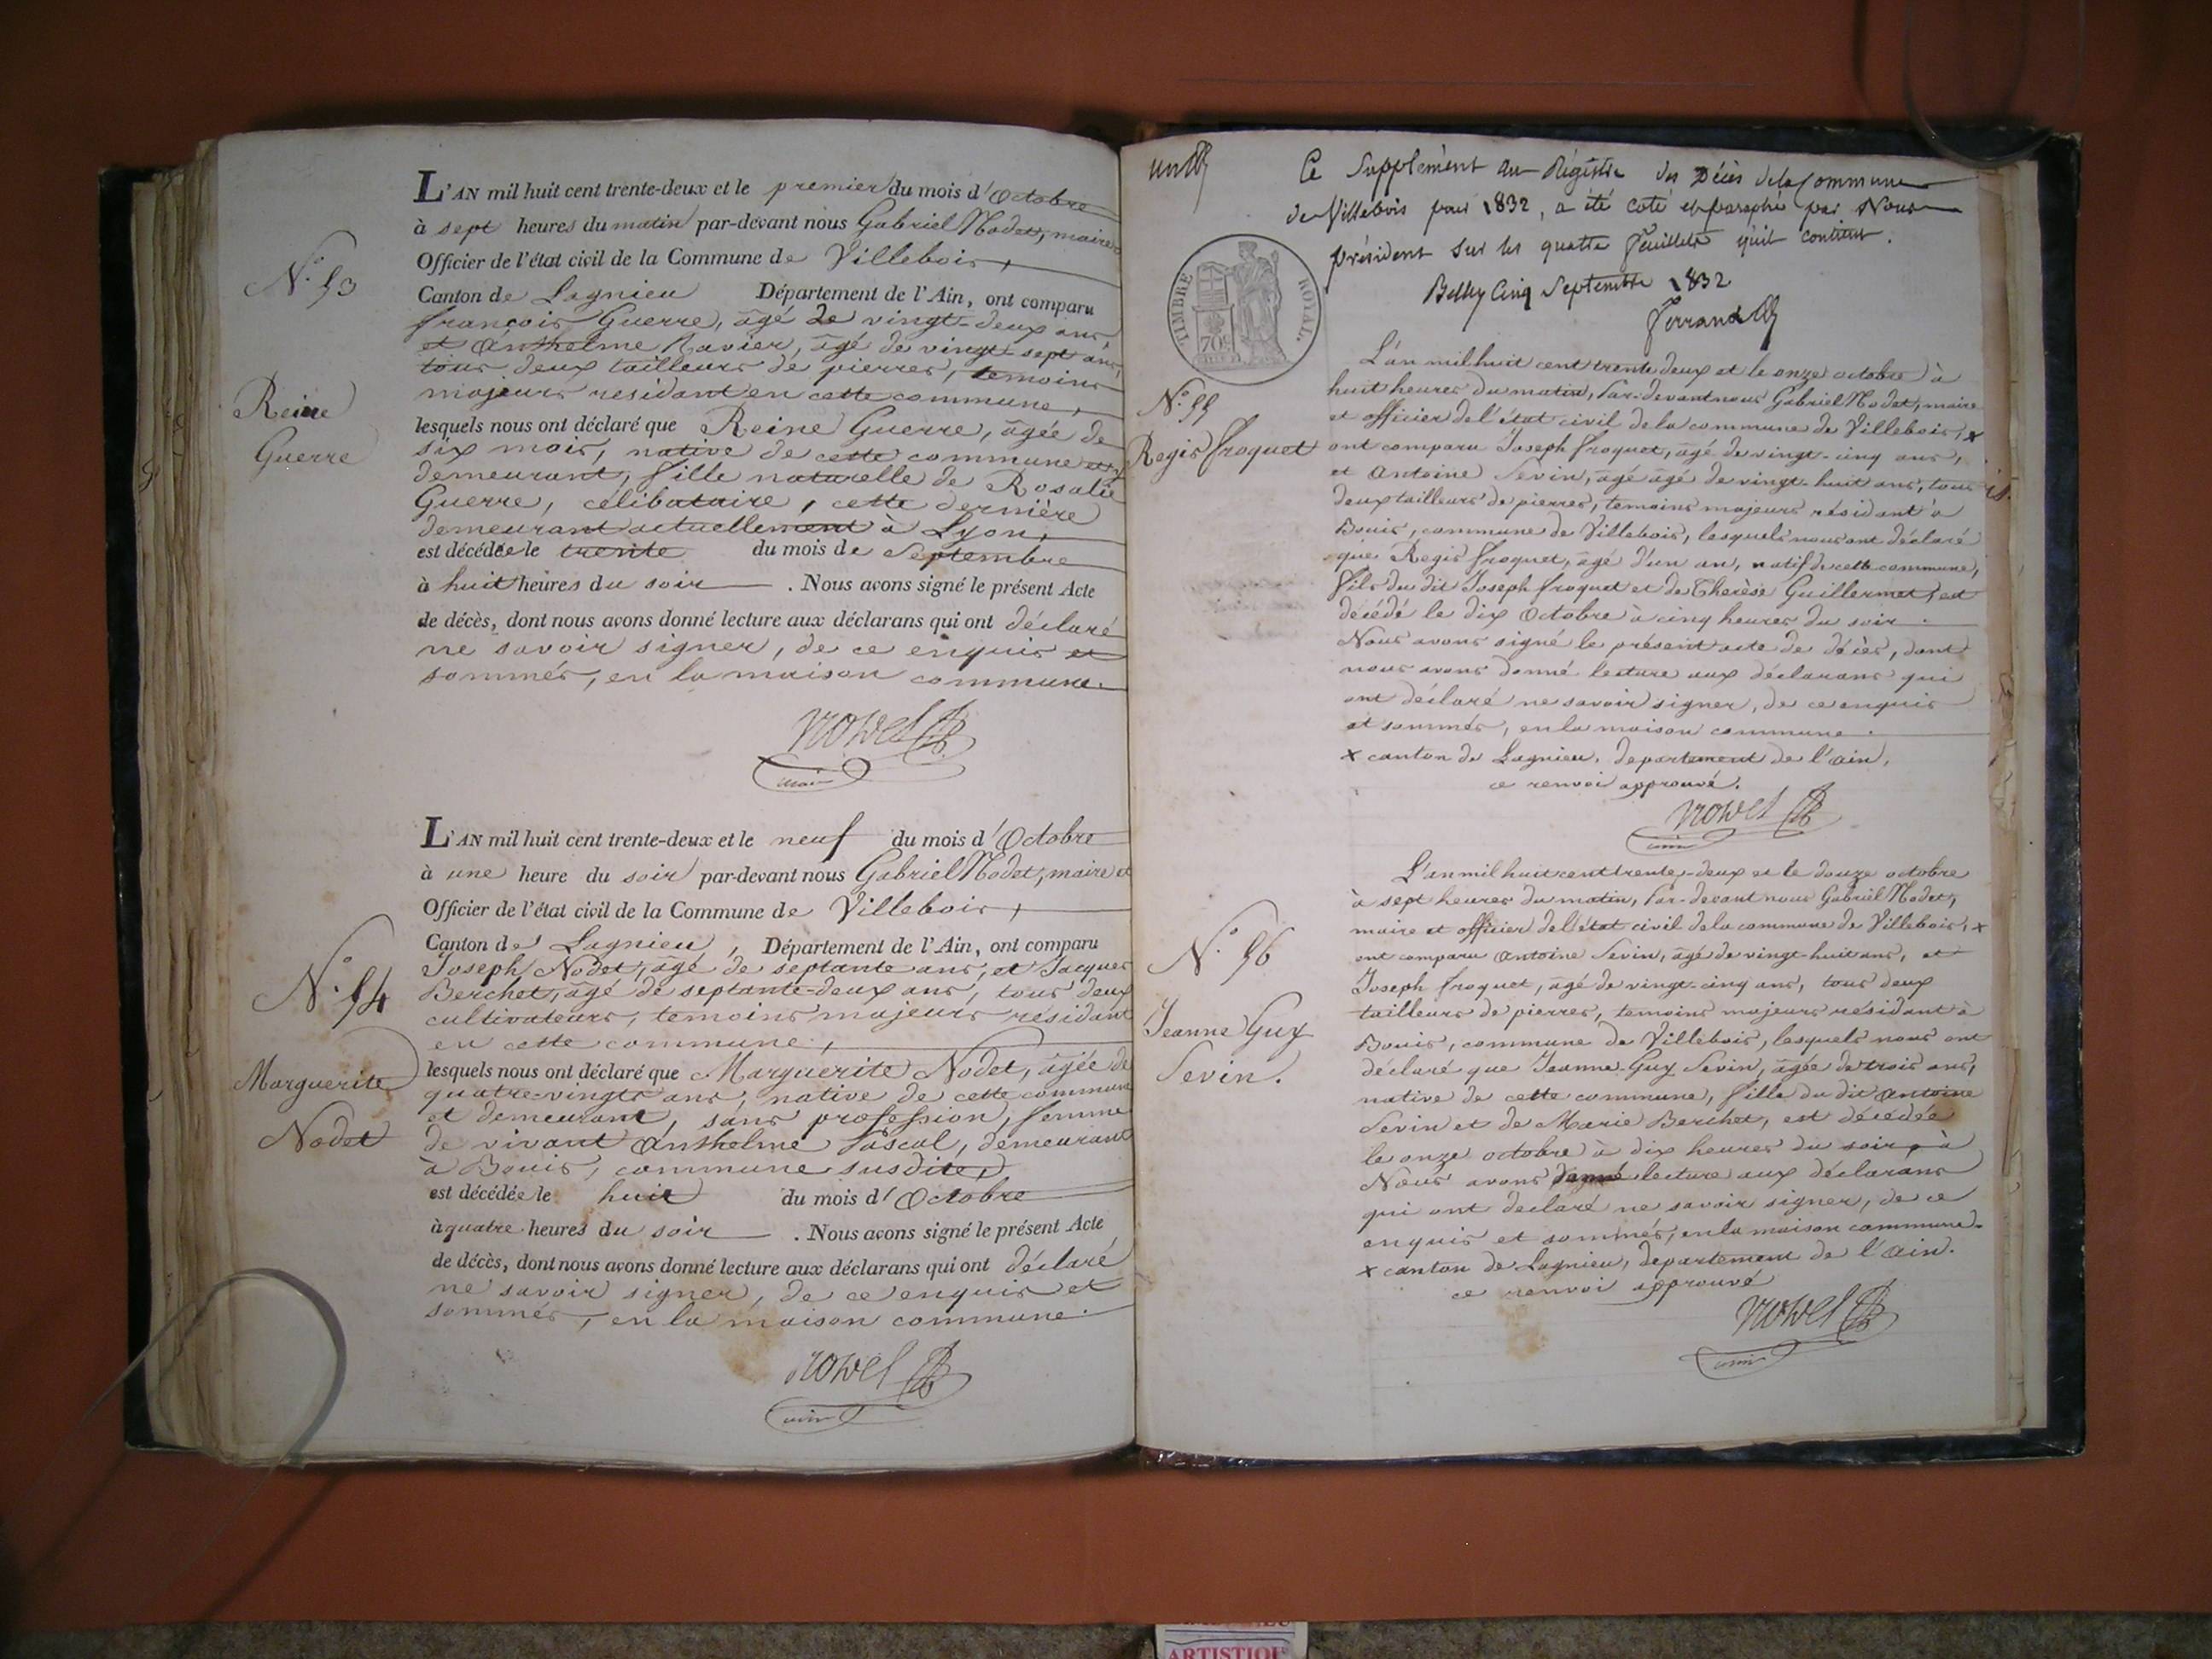 N.° 53
Reine
Guerre
L'AN mil huit cent trente-deux et le premier du mois d'Octobre
à sept heures du matin par-devant nous Gabriel Nodet, maire
Officier de l'état civil de la Commune de Villebois,
Canton de Lagnieu Département de l'Ain, ont comparu
françois Guerre, âgé de vingt-deux ans,
et Anthelme Ravier, âgé de vingt-sept ans,
tous deux tailleurs de pierres, temoins
majeurs residant en cette commune,
lesquels nous ont déclaré que Reine Guerre, âgée de
six mois, native de cette commune et
demeurant, fille naturelle de Rosalie
Guerre, célibataire, cette dernière
demeurant actuellement à Lyon,
est décédée le trente du mois de Septembre
à huit heures du soir . Nous avons signé le présent Acte
de décès, dont nous avons donné lecture aux déclarans qui ont déclaré
ne savoir signer, de ce enquis et
sommés, en la maison commune.
Nodet
maire
N.° 54
Marguerite
Nodet
L'AN mil huit cent trente-deux et le neuf du mois d'Octobre
à une heure du soir par-devant nous Gabriel Nodet, maire et
Officier de l'état civil de la Commune de Villebois,
Canton de Lagnieu, Département de l'Ain, ont comparu
Joseph Nodet, âgé de septante ans, et Jacques
Berchet, âgé de septante-deux ans, tous deux
cultivateurs, temoins majeurs résidant
en cette commune,
lesquels nous ont déclaré que Marguerite Nodet, âgée de
quatre-vingts ans, native de cette commune
et demeurant, sans profession, femme
de vivant Anthelme Pascal, demeurant
à Bouis, commune susdite,
est décédée le huit du mois d'Octobre
à quatre heures du soir . Nous avons signé le présent Acte
de décès, dont nous avons donné lecture aux déclarans qui ont déclaré
ne savoir signer, de ce enquis et
sommés, en la maison commune.
Nodet
maire
un
Ce Supplément au Régistre des Décès de la Commune
de Villebois pour 1832, a été coté et paraphé par Nous
président sur les quatre feuillets qu'il contient.
Belley Cinq Septembre 1832
Ferrand
TIMBRE ROYAL
70c
N.° 55
Regis froquet
L'an mil huit cent trente deux et le onze octobre à
huit heures du matin, Par-devant nous Gabriel Nodet, maire
et officier de l'état civil de la commune de Villebois, x
ont comparu Joseph froquet, âgé de vingt-cinq ans,
et Antoine Sevin, âgé âgé de vingt-huit ans, tous
deux tailleurs de pierres, temoins majeurs résidant à
Bouis, commune de Villebois, lesquels nous ont déclaré
que Regis froquet, âgé d'un an, natif de cette commune,
fils du dit Joseph froquet et de Therèse Guillermet, est
décédé le dix Octobre à cinq heures du soir.
Nous avons signé le présent acte de décès, dont
nous avons donné lecture aux déclarans qui
ont déclaré ne savoir signer, de ce enquis
et sommés, en la maison commune.
x canton de Lagnieu, departement de l'ain,
ce renvoi approuvé.
Nodet
maire
N.° 56
Jeanne Guy
Sevin.
L'an mil huit cent trente-deux et le douze octobre
à sept heures du matin, Par-devant nous Gabriel Nodet,
maire et officier de l'état civil de la commune de Villebois, x
ont comparu Antoine Sevin, âgé de vingt-huit ans, et
Joseph froquet, âgé de vingt-cinq ans, tous deux
tailleurs de pierres, temoins majeurs résidant à
Bouis, commune de Villebois, lesquels nous ont
déclaré que Jeanne-Guy Sevin, âgée de trois ans,
native de cette commune, fille du dit Antoine
Sevin et de Marie Berchet, est décédée
le onze octobre à dix heures du soir, à
Nous avons donné lecture aux déclarans
qui ont déclaré ne savoir signer, de ce
enquis et sommés, en la maison commune.
x canton de Lagnieu, departement de l'Ain.
ce renvoi approuvé
Nodet
maire
ARTISTIQUE